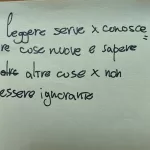 leggere serve x conosce
re cose nuove e sapere
altre cose x non
essere ignorante